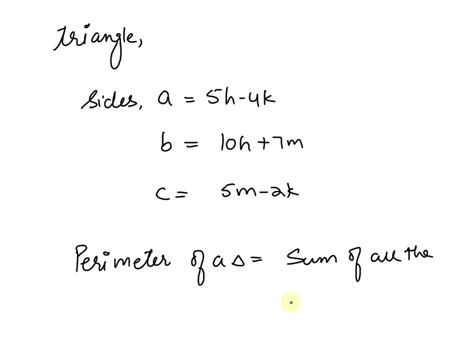 triangle,
Sides, a = 5h-4k
b = 10h+7m
c = 5m-2k
Perimeter of a △ = Sum of all the